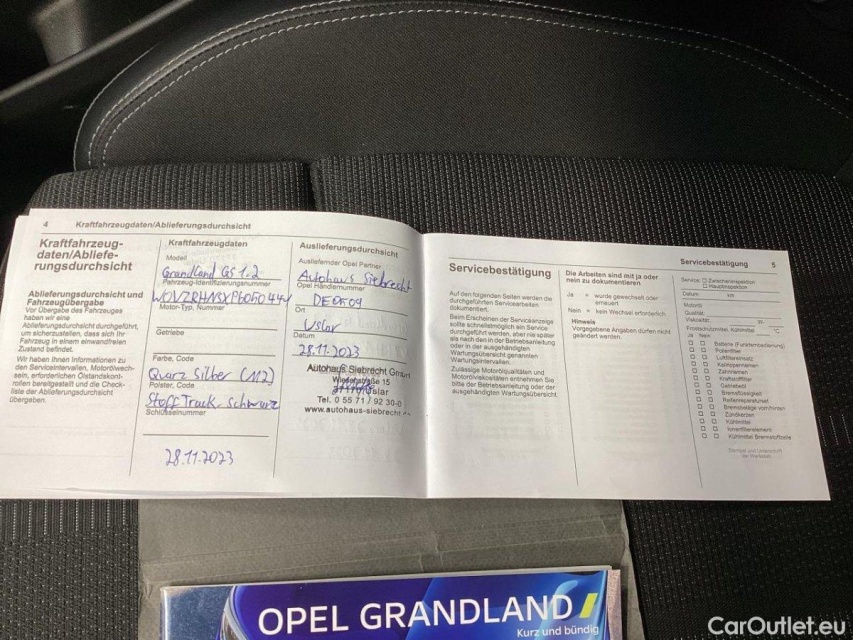 4 Kraftfahrzeugdaten/Ablieferungsdurchsicht
Kraftfahrzeug-
daten/Abliefe-
rungsdurchsicht
Ablieferungsdurchsicht und
Fahrzeugübergabe
Vor Übergabe des Fahrzeuges
haben wir eine
Ablieferungsdurchsicht durchgeführt,
um sicherzustellen, dass sich Ihr
Fahrzeug in einem einwandfreien
Zustand befindet.
Wir haben Ihnen Informationen zu
den Serviceintervallen, Motorölwech-
seln, erforderlichen Ölstandskont-
rollen bereitgestellt und die Check-
liste der Ablieferungsdurchsicht
übergeben.
Kraftfahrzeugdaten
Modell
Grandland GS 1.2
Fahrzeug-Identifizierungsnummer
Motor-Typ, Nummer
Getriebe
Farbe, Code
Quarz Silber (112)
Polster, Code
Stoff Track Schwarz
Schlüsselnummer
28.11.2023
Auslieferungsdurchsicht
Ausliefernder Opel Partner
Autohaus Siebrecht
Opel Händlernummer
DE0F09
Ort
Uslar
Datum
28.11.2023
Autohaus Siebrecht GmbH
15
Uslar
Tel. 0 55 71 / 92 30-0
www.autohaus-siebrecht
Servicebestätigung 5
Servicebestätigung
Auf den folgenden Seiten werden die
durchgeführten Servicearbeiten
dokumentiert.
Beim Erscheinen der Serviceanzeige
sollte schnellstmöglich ein Service
durchgeführt werden, aber nie später
als nach den in der Betriebsanleitung
oder in der ausgehändigten
Wartungsübersicht genannten
Wartungsintervallen.
Zulässige Motorölqualitäten und
Motorölviskositäten entnehmen Sie
bitte der Betriebsanleitung oder der
ausgehändigten Wartungsübersicht.
Die Arbeiten sind mit ja oder
nein zu dokumentieren.
Ja = wurde gewechselt oder
erneuert
Nein = kein Wechsel erforderlich
Hinweis
Vorgegebene Angaben dürfen nicht
geändert werden.
Service: Zwischeninspektion
Hauptinspektion
Datum km
Motoröl
Qualität:
Viskosität:
Frostschutzmittel, Kühlmittel °C
Ja Nein
Batterie (Funkfernbedienung)
Pollenfilter
Luftfiltereinsatz
Keilrippenriemen
Zahnriemen
Kraftstofffilter
Getriebeöl
Bremsflüssigkeit
Reifenreparaturset
Bremsbeläge vorn/hinten
Zündkerzen
Kühlmittel
Innenfilterelement
Kühlmittel Brennstoffzelle
Stempel und Unterschrift
der Werkstatt
OPEL GRANDLAND
Kurz und bündig
CarOutlet.eu